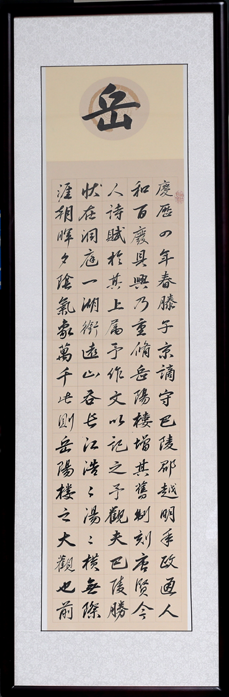 岳
慶曆四年春滕子京謫守巴陵郡越明年政通人
和百廢具興乃重脩岳陽樓增其舊制刻唐賢今
人詩賦於其上屬予作文以記之予觀夫巴陵勝
狀在洞庭一湖銜遠山吞長江浩〻湯〻橫無際
涯朝暉夕陰氣象萬千此則岳陽樓之大觀也前